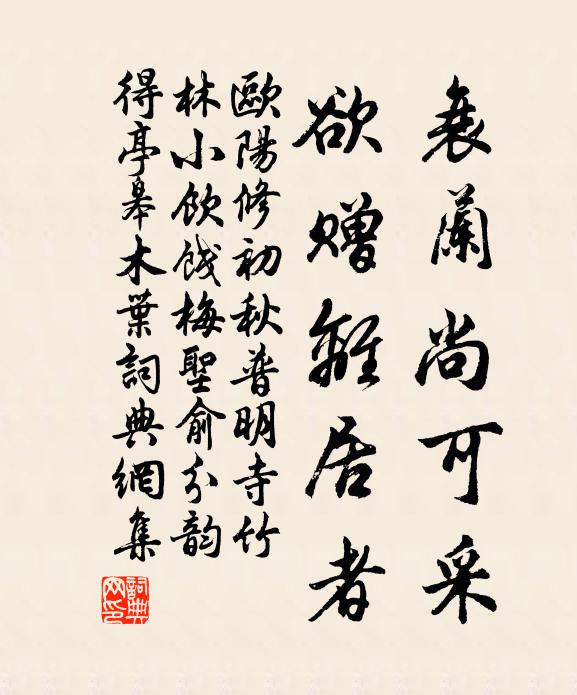 衰蘭尚可采
欲贈離居者
歐陽修初秋普明寺竹
林小飲餞梅聖俞分韵
得亭皋木葉詞典網集
詞典網印